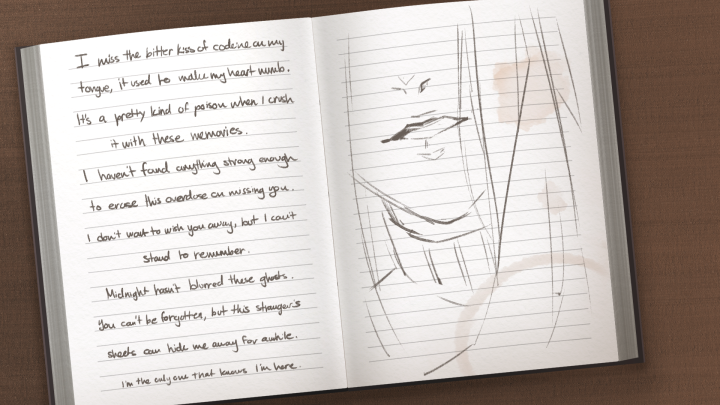 I miss the bitter kiss of codeine on my
tongue, it used to make my heart numb.
It's a pretty kind of poison when I crush
it with these memories.
I haven't found anything strong enough
to erase this overdose on missing you.
I don't want to wish you away, but I can't
stand to remember.
Midnight hasn't blurred these ghosts.
You can't be forgotten, but this stranger's
sheets can hide me away for awhile.
I'm the only one that knows I'm here.